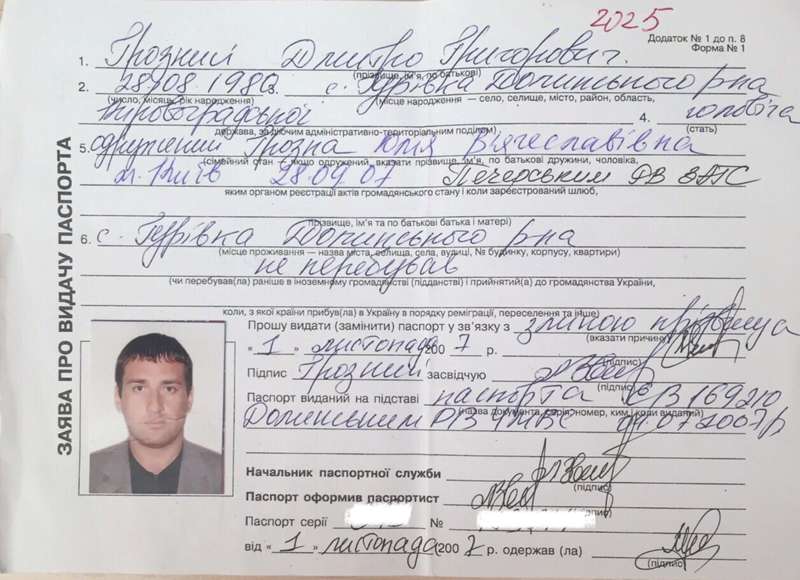 2025
Додаток № 1 до п. 8
Форма № 1
ЗАЯВА ПРО ВИДАЧУ ПАСПОРТА
1. Грозний Дмитро Григорович.
(прізвище, ім'я, по батькові)
2. 28.08.1980 3. с. Гурівка Долинського р-на
(число, місяць, рік народження) (місце народження — село, селище, місто, район, область,
Кіровоградської 4. чоловіча
держава, за діючим адміністративно-територіальним поділом) (стать)
5. одружений Грозна Юлія В'ячеславівна
(сімейний стан — якщо одружений, вказати прізвище, ім'я, по батькові дружини, чоловіка,
м. Київ 28.09.07 Печерським РВ ЗАГС
яким органом реєстрації актів громадянського стану і коли зареєстрований шлюб,
прізвище, ім'я та по батькові батька і матері)
6. с. Гурівка Долинського р-на
(місце проживання — назва міста, селища, села, вулиці, № будинку, корпусу, квартири)
не перебував
(чи перебував(ла) раніше в іноземному громадянстві (підданстві) і прийнятий(а) до громадянства України,
коли, з якої країни прибув(ла) в Україну в порядку рееміграції, переселення та інше)
Прошу видати (замінити) паспорт у зв'язку з зміною прізвища
(вказати причину)
" 1 " листопада 200 7 р.
(підпис)
Підпис Грозний засвідчую
(підпис)
Паспорт виданий на підставі паспорта 169210
(назва документа, серія, номер, ким, коли виданий)
Долинським РВ УМВС 07.2007р
Начальник паспортної служби
(підпис)
Паспорт оформив паспортист
(підпис)
Паспорт серії №
від " 1 " листопада 200 7 р. одержав (ла)
(підпис)